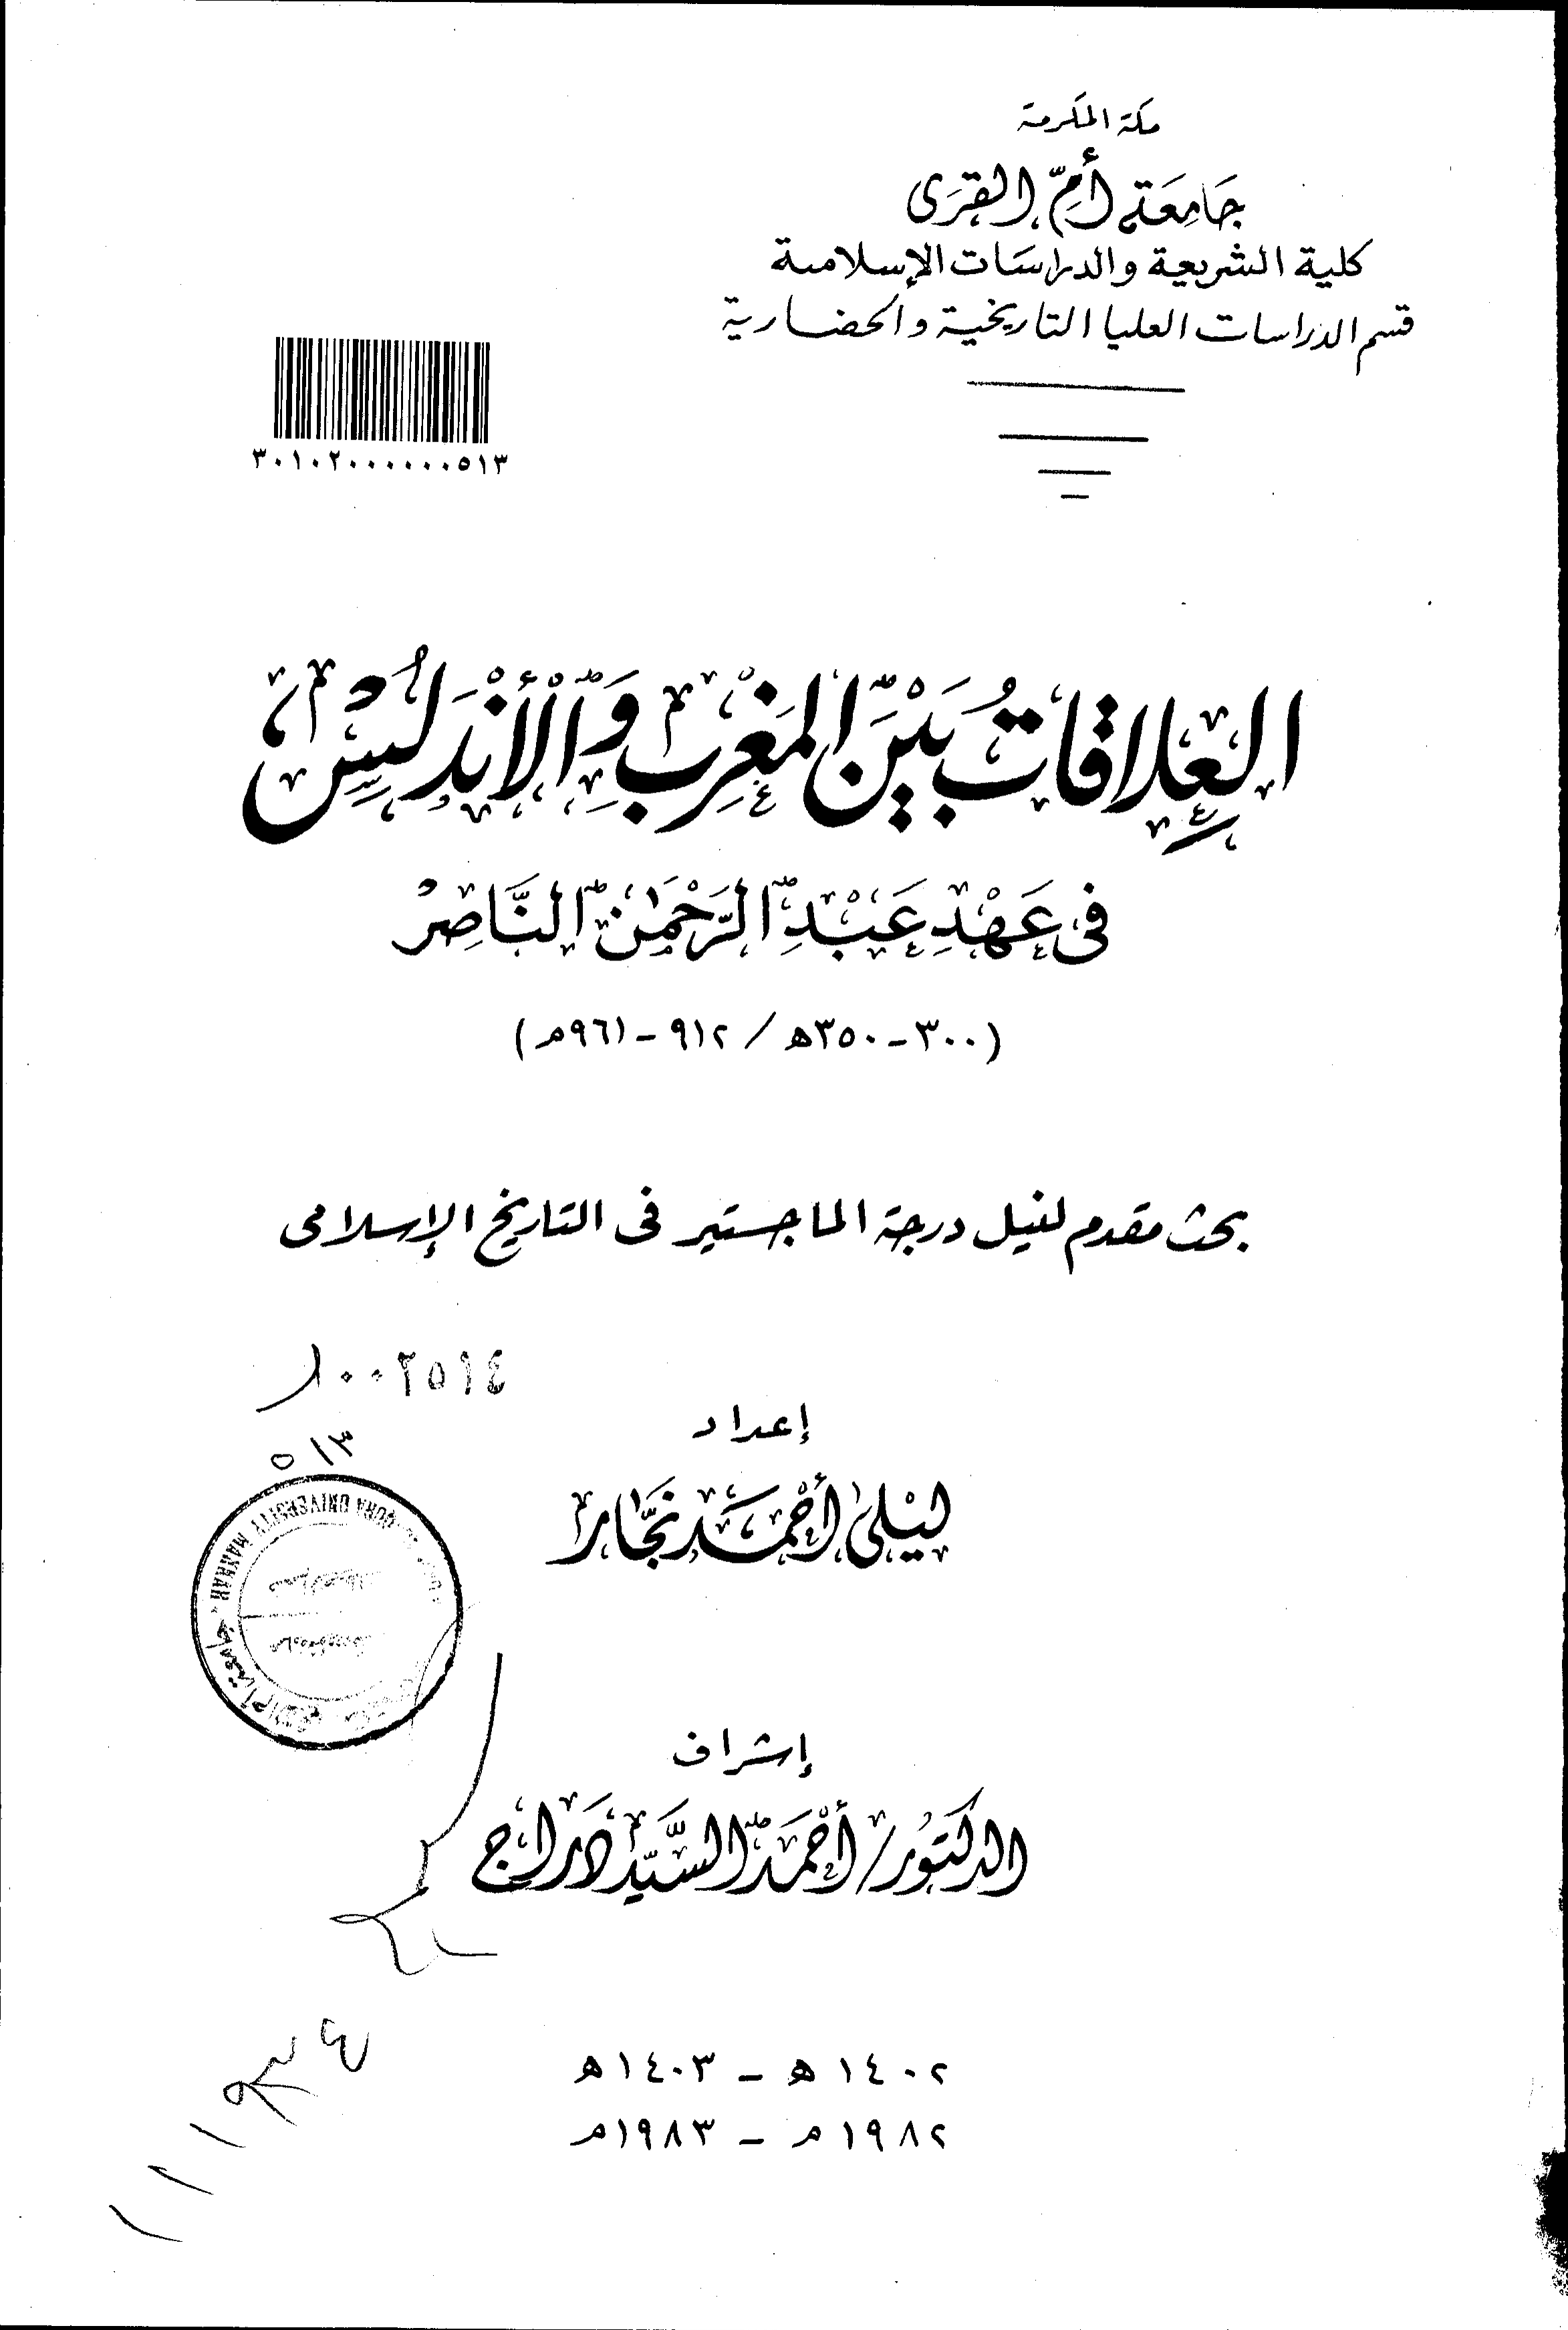 مكة المكرمة
جَامِعَة أمّ القرَى
كلية الشريعة والدراسَات الإسلامية
قسم الدراسات العليا التاريخية والحضارية
٣٠١٠٢٠٠٠٠٠٠٥١٣
العِلاقاتُ بَيْنَ المَغْرِب وَالأنْدَلُسِ
فى عَهْدِ عَبْدِ الرَّحْمٰن النَّاصِرْ
(٣٠٠-٣٥٠ه / ٩١٢-٩٦١م)
بحث مقدم لنيل درجة الماجستير فى التاريخ الإسلامى
١٠٠٢٥١٤
٥١٣
إعداد
ليْلىٰ أحْمَد نجَّار
UNIVERSITY MAKKAH
جامعة أم القرى
إشراف
الدكتوُر/ أحْمَد السَّيّد دَراج
١١٩٣٤
١٤٠٢ ه - ١٤٠٣ه
١٩٨٢ م - ١٩٨٣م